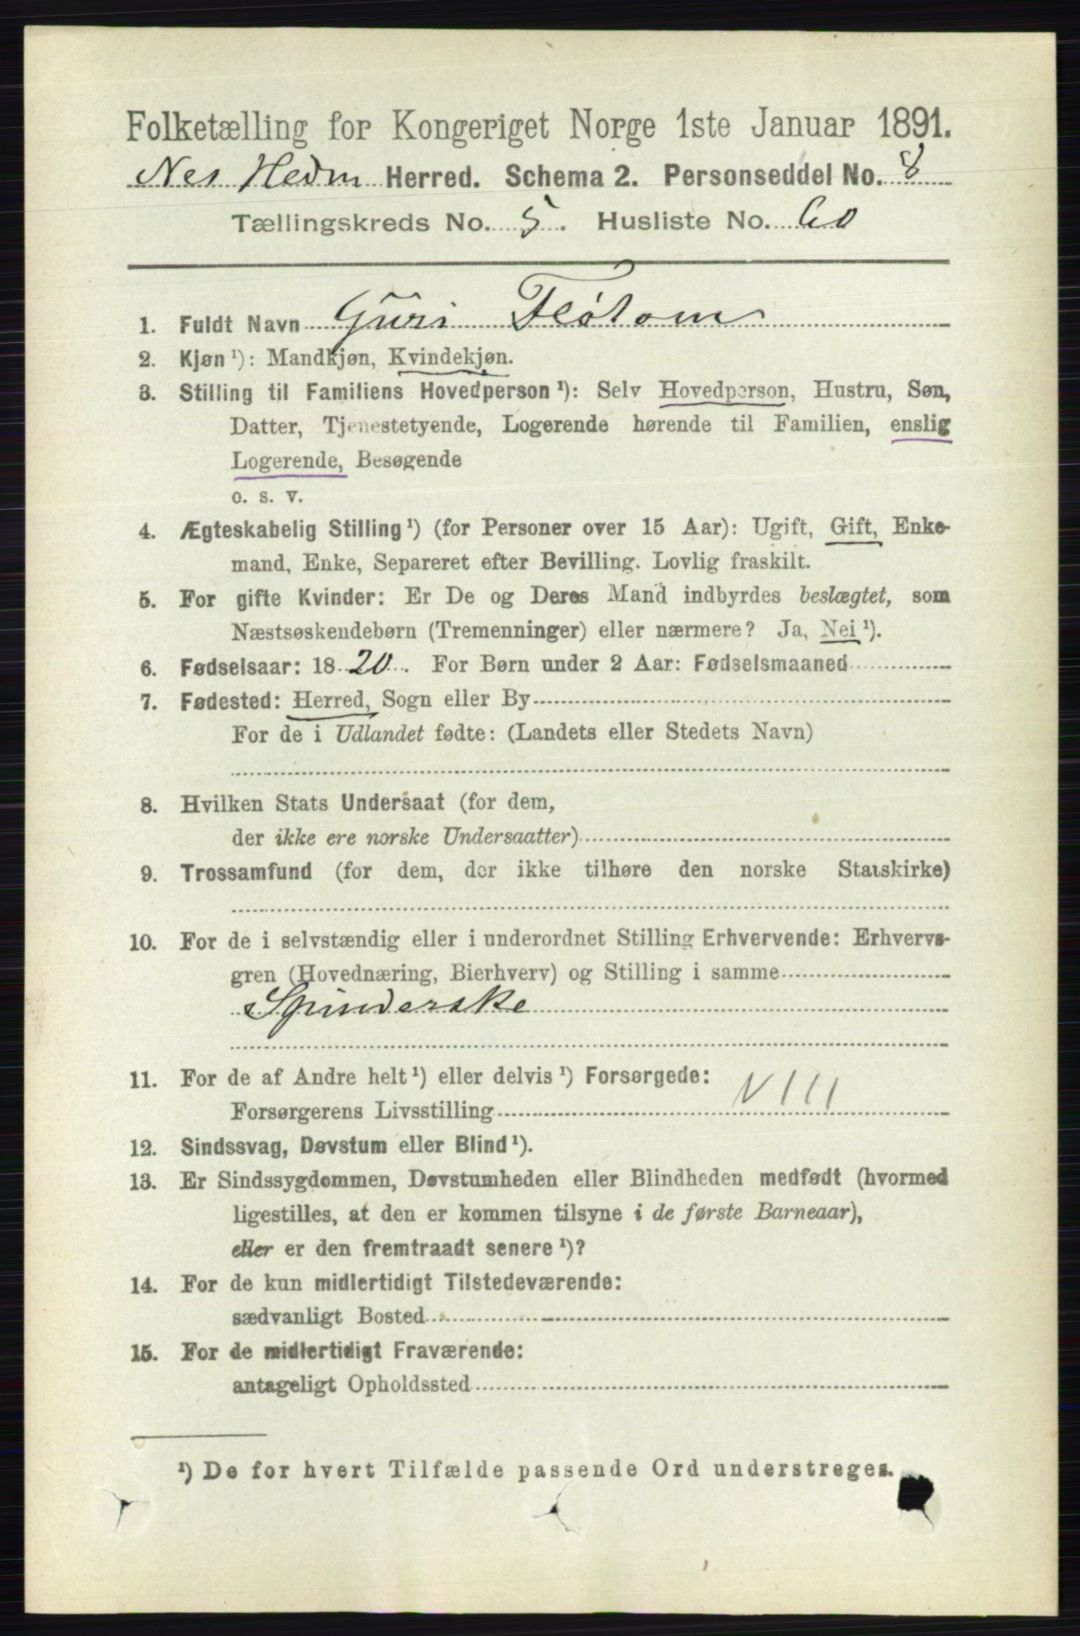 Folketælling for Kongeriget Norge 1ste Januar 1891.
Nes Hedm Herred. Schema 2. Personseddel No. 8
Tællingskreds No. 5. Husliste No. 60
1. Fuldt Navn Guri Fløtom
2. Kjøn ¹): Mandkjøn, Kvindekjøn.
3. Stilling til Familiens Hovedperson ¹): Selv Hovedperson, Hustru, Søn,
Datter, Tjenestetyende, Logerende hørende til Familien, enslig
Logerende, Besøgende
o. s. v.
4. Ægteskabelig Stilling ¹) (for Personer over 15 Aar): Ugift, Gift, Enke-
mand, Enke, Separeret efter Bevilling. Lovlig fraskilt.
5. For gifte Kvinder: Er De og Deres Mand indbyrdes beslægtet, som
Næstsøskendebørn (Tremenninger) eller nærmere? Ja, Nei ¹).
6. Fødselsaar: 18 20. For Børn under 2 Aar: Fødselsmaaned
7. Fødested: Herred, Sogn eller By
For de i Udlandet fødte: (Landets eller Stedets Navn)
8. Hvilken Stats Undersaat (for dem,
der ikke ere norske Undersaatter)
9. Trossamfund (for dem, der ikke tilhøre den norske Statskirke)
10. For de i selvstændig eller i underordnet Stilling Erhvervende: Erhvervs-
gren (Hovednæring, Bierhverv) og Stilling i samme
Spinderske
11. For de af Andre helt ¹) eller delvis ¹) Forsørgede:
Forsørgerens Livsstilling VIII
12. Sindssvag, Døvstum eller Blind ¹).
13. Er Sindssygdommen, Døvstumheden eller Blindheden medfødt (hvormed
ligestilles, at den er kommen tilsyne i de første Barneaar),
eller er den fremtraadt senere ¹)?
14. For de kun midlertidigt Tilstedeværende:
sædvanligt Bosted
15. For de midlertidigt Fraværende:
antageligt Opholdssted
¹) De for hvert Tilfælde passende Ord understreges.